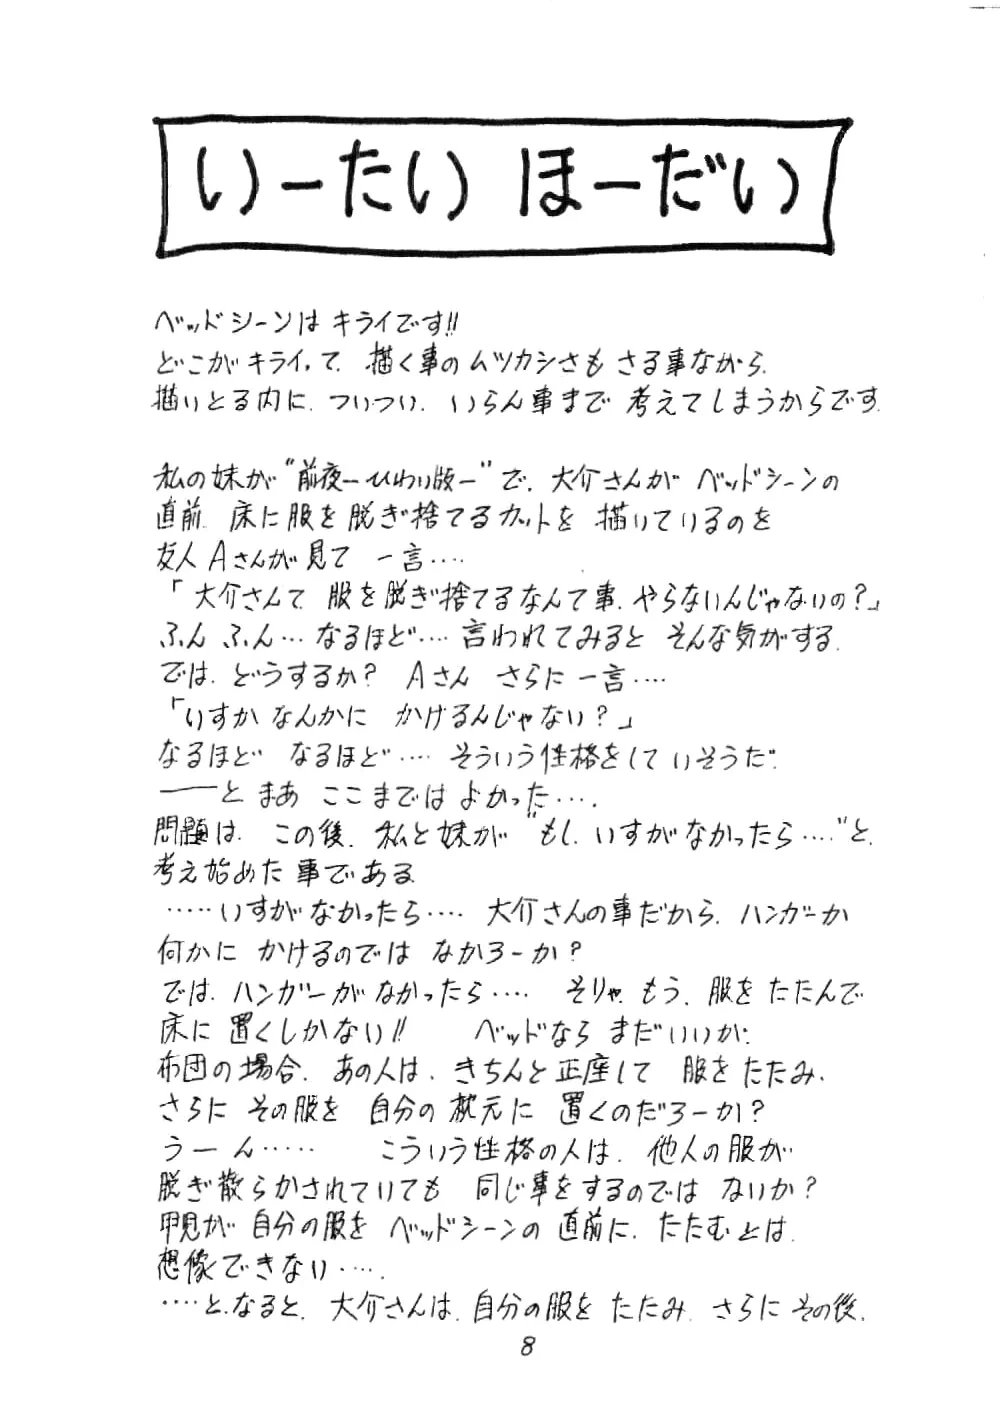 いーたい ほーだい
ベッドシーンは キライです!!
どこがキライって、描く事のムツカシさも さる事ながら、
描いとる内に、ついつい、いらん事まで 考えてしまうからです。
私の妹が“前夜—ひわい版—”で、大介さんが ベッドシーンの
直前、床に服を脱ぎ捨てるカットを 描いているのを
友人Aさんが見て 一言‥‥
「大介さんて、服を脱ぎ捨てるなんて事、やらないんじゃないの?」
ふん ふん… なるほど‥‥ 言われてみると そんな気がする。
では、どうするか? Aさん さらに一言‥‥
「いすか なんかに かけるんじゃない?」
なるほど なるほど‥‥ そういう性格をして いそうだ。
——と まあ ここまでは よかった‥‥
問題は、この後、私と妹が “もし、いすがなかったら‥‥”と、
考え始めた事である。
‥‥‥いすがなかったら‥‥ 大介さんの事だから、ハンガーか
何かに かけるのでは なかろーか?
では、ハンガーがなかったら‥‥ そりゃ、もう、服を たたんで
床に 置くしかない!! ベッドなら まだいいが、
布団の場合、あの人は、きちんと正座して 服をたたみ、
さらに その服を 自分の枕元に 置くのだろーか?
うーん‥‥‥ こういう性格の人は、他人の服が
脱ぎ散らかされていても 同じ事をするのでは ないか?
甲児が 自分の服を ベッドシーンの 直前に、たたむとは、
想像できない‥‥‥
‥‥と、なると、大介さんは、自分の服を たたみ、さらに その後、
8